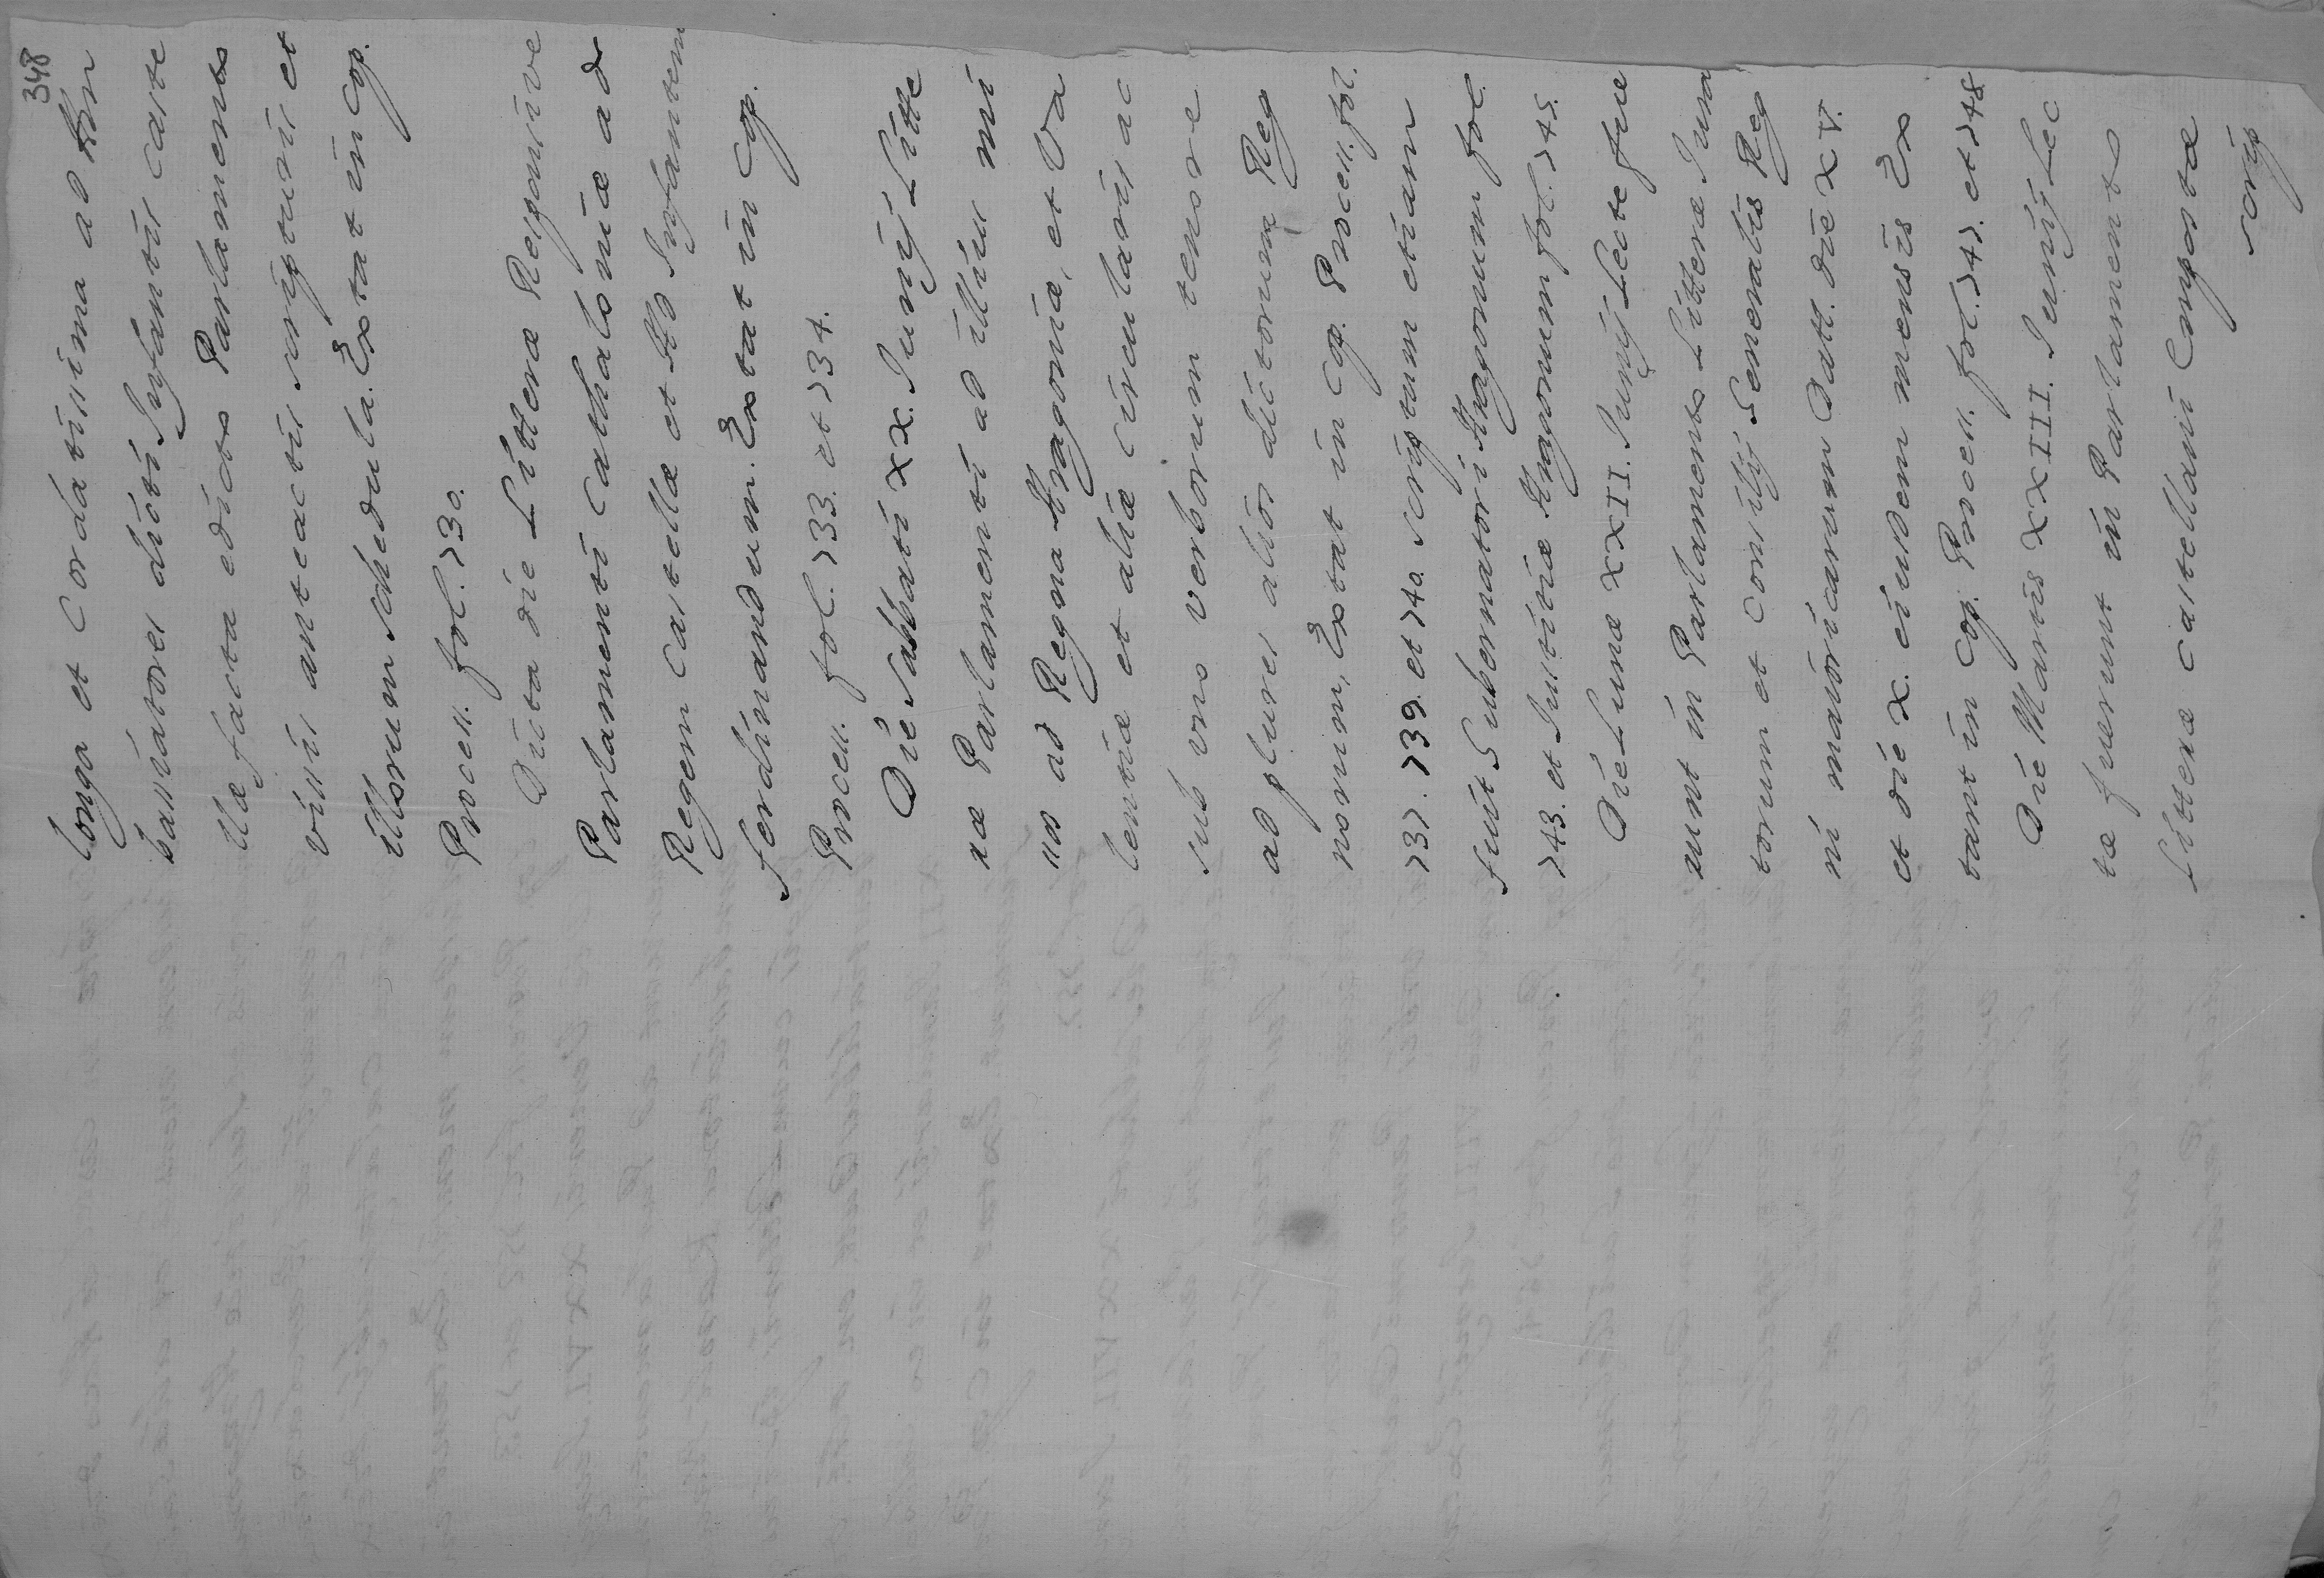 348
longa et cordatissima ad Am
bassiatores dicti Infantis caste
llæ facta edicto Parlamento
vissis anteactis scripturis et
illorum schedula. Extat in cop.
Process. fol. 730.
Dicta die Litteræ Responsive
Parlamenti Cathaloniæ ad
Regem castellæ et Illo Infantem
ferdinandum. Extat in cop.
Process. fol. 733. et 734.
Die sabbati XX. Junij Litte
ræ Parlamenti ad illius mi
sso ad Regna Aragoniæ, et Va
lentiæ et aliæ circulares ac
sub uno verborum tenore
ad plures alios dictorum Reg
norum, Extat in cop. Process. fol.
737. 739. et 740. scriptum etiam
fuit Gubernatori Aragonum fol.
743. et Justitiæ Aragonum fol. 745.
Die Lunæ XXII. Junij Lecte fue
runt in Parlamento Litteræ Jura
torum et consilij Generalis Reg
ni maioricarum Datt. die XV.
et die X. eiusdem mensis Ex
tant in cop. Process. fol. 747. et 748
Die Martis XXIII. Junij Lec
tæ fuerunt in Parlamento
Litteræ castellani Empostæ
scrip